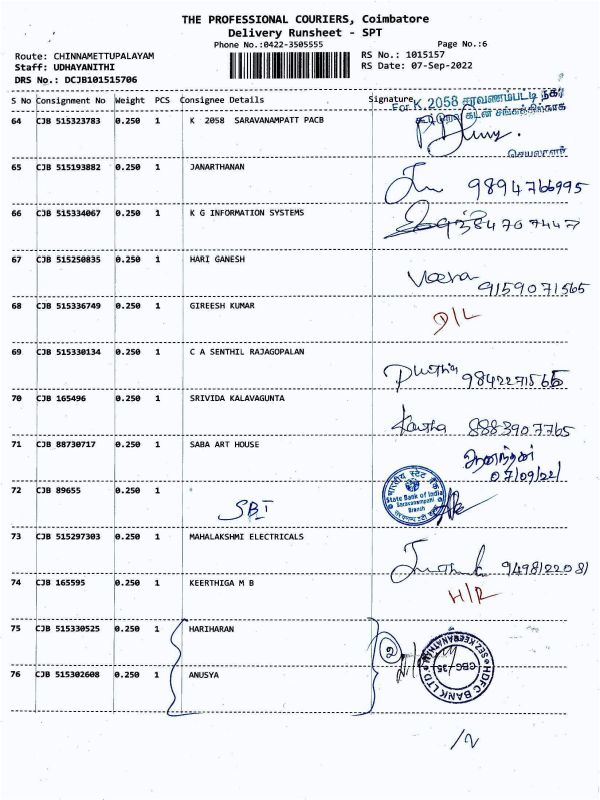 THE PROFESSIONAL COURIERS, Coimbatore
Delivery Runsheet - SPT
Phone No.:0422-3505555
Page No.:6
Route: CHINNAMETTUPALAYAM
RS No.: 1015157
Staff: UDHAYANITHI
RS Date: 07-Sep-2022
DRS No.: DCJB101515706
S No Consignment No Weight PCS Consignee Details Signature
For K. 2058 சரவணம்பட்டி நகர
கடன் சங்கத்திற்காக
64 CJB 515323783 0.250 1 K 2058 SARAVANAMPATT PACB
செயலாளர்
65 CJB 515193882 0.250 1 JANARTHANAN
9894766995
66 CJB 515334067 0.250 1 K G INFORMATION SYSTEMS
9384707447
67 CJB 515250835 0.250 1 HARI GANESH
Veera 9159071565
68 CJB 515336749 0.250 1 GIREESH KUMAR
D/L
69 CJB 515330134 0.250 1 C A SENTHIL RAJAGOPALAN
70 CJB 165496 0.250 1 SRIVIDA KALAVAGUNTA
8883907765
71 CJB 88730717 0.250 1 SABA ART HOUSE
07/09/22
72 CJB 89655 0.250 1
SBI
भारतीय स्टेट बैंक
State Bank of India
Saravanampatti
Branch
73 CJB 515297303 0.250 1 MAHALAKSHMI ELECTRICALS
9498122081
74 CJB 165595 0.250 1 KEERTHIGA M B
H/R
75 CJB 515330525 0.250 1 HARIHARAN
76 CJB 515302608 0.250 1 ANUSYA
HDFC BANK LTD
CBG-35
/2